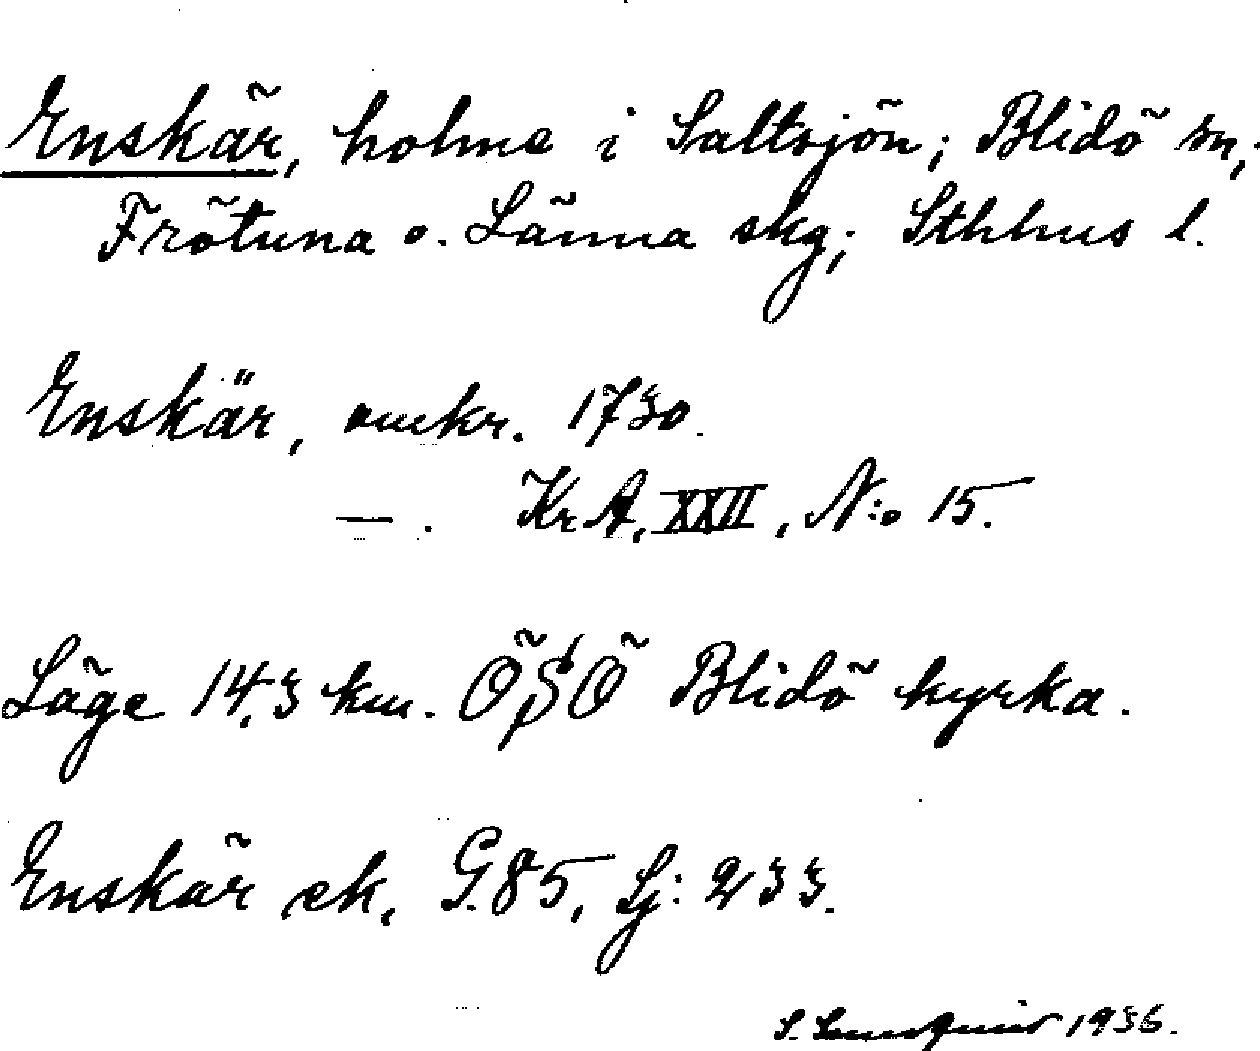 Enskär, holme i Saltsjön; Blidö sn,
Frötuna o. Länna skg; Sthlms l.
Enskär, omkr. 1730.
— . KrA, XXII, N:o 15.
Läge 14,3 km. ÖSÖ Blidö kyrka.
Enskär ek, G.85, Sj: 233.
S. 1936.